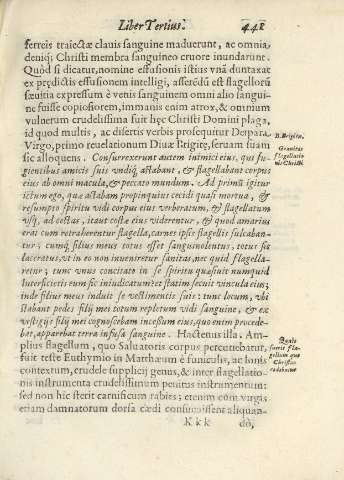 Liber Tertius. 441
ferreis traiectæ clauis sanguine maduerunt, ac omnia
deniq; Christi membra sanguineo cruore inundarunt.
Quòd si dicatur, nomine effusionis istius vnã duntaxat
ex prędictis effusionem intelligi, asserẽdũ est flagellorũ
sæuitia expressum è venis sanguinem omni alio sangui-
ne fuisse copiosiorem, immanis enim atrox, & omnium
vulnerum crudelissima fuit hęc Christi Domini plaga,
id quod multis, ac disertis verbis prosequitur Deipara
Virgo, primo reuelationum Diuæ Brigitę, seruam suam
sic alloquens. Consurrexerunt autem inimici eius, qui fu-
gientibus amicis suis vndiq; astabant, & flagellabant corpus
eius ab omni macula, & peccato mundum. Ad primũ igitur
ictum ego, quæ astabam propinquius cecidi quasi mortua, &
resumpto spiritu vidi corpus eius verberatum, & flagellatum
vsq; ad costas, itaut costæ eius viderentur, & quod amarius
erat cum retraherentur flagella, carnes ipsis flagellis sulcaban-
tur; cumq; filius meus totus esset sanguinolentus, totus sic
laceratus, vt in eo non inueniretur sanitas, nec quid flagella-
retur; tunc vnus concitato in se spiritu quæsiuit numquid
Interficietis eum sic iniudicatum: et statim secuit vincula eius;
inde filius meus induit se vestimentis suis: tunc locum, vbi
stabant pedes filij mei totum repletum vidi sanguine, & ex
vestigijs filij mei cognoscebam incessum eius, quo enim procede-
bat, apparebat terra infusa sanguine. Hactenus illa. Am-
plius flagellum, quo Saluatoris corpus percutiebatur,
fuit teste Euthymio in Matthæum è funiculis, ac loris
contextum, crudele supplicij genus, & inter flagellatio-
nis instrumenta crudelissimum penitus instrumentum:
sed non hic sterit carnificum rabies; etenim cum virgis
etiam damnatorum dorsa cædi consueuissent aliquan-
K k k dò,
B. Brigita.
Grauitas
flagellatio
nis Christi.
Quale
fuerit fla-
gellum quo
Christus
cædebatur